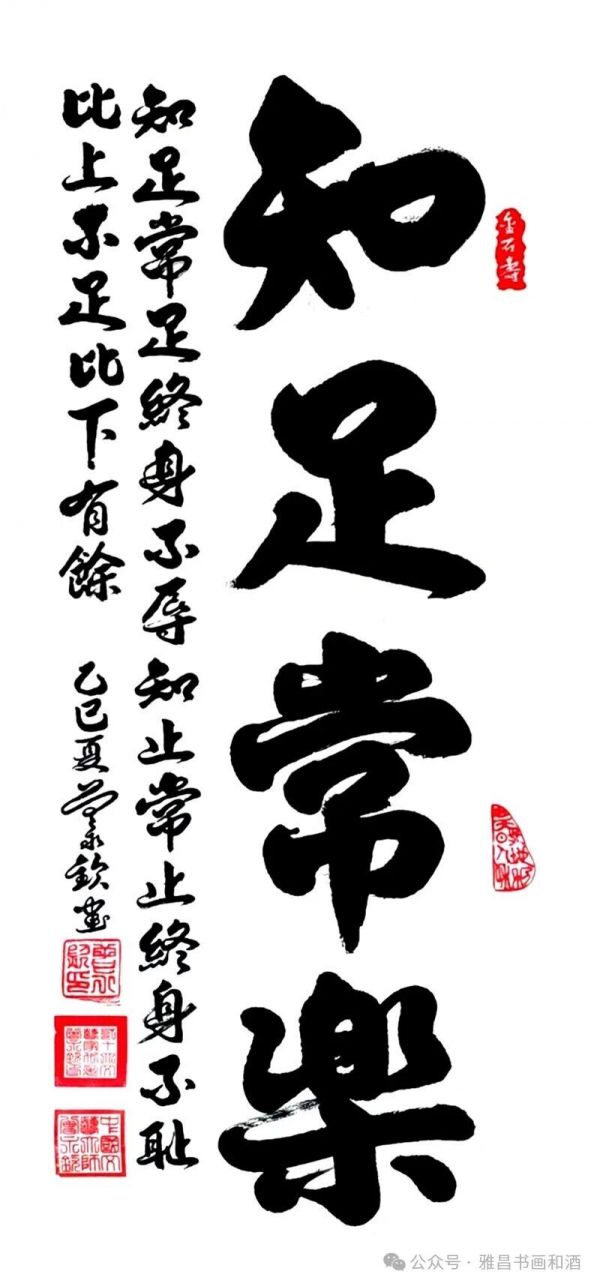 知足常樂
知足常足終身不辱知止常止終身不恥
比上不足比下有餘
乙巳夏曾永欽書
金石壽
公众号 · 雅昌书画和酒